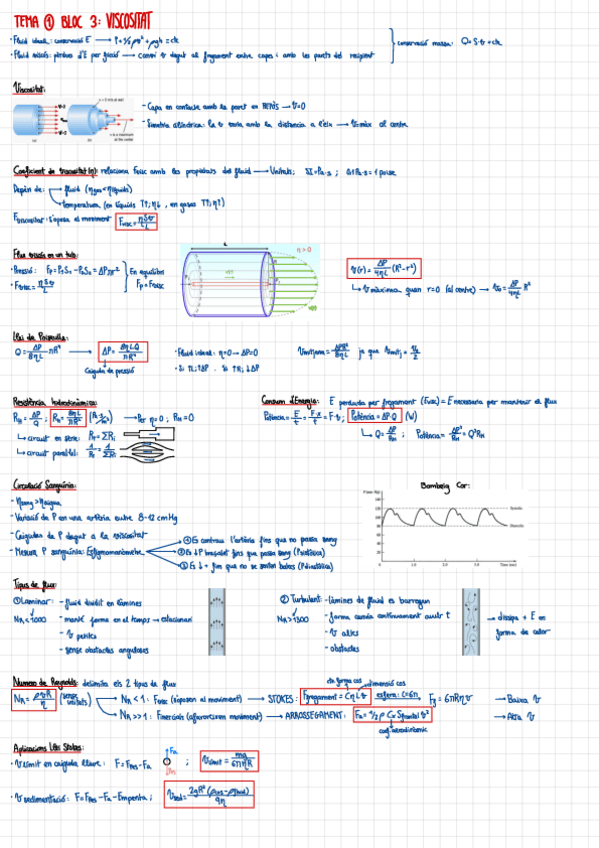 TEMA ① BLOC 3: VISCOSITAT
· Fluid ideal: conservació E → P + 1/2 ρv² + ρgh = ctt
· Fluid viscós: pèrdues d'E per fricció → Canvi v degut al fregament entre capes i amb les parets del recipient
conservació massa: Q = S·v = ctt
Viscositat:
- Capa en contacte amb la paret en REPÒS → v=0
- Simetria cilíndrica: la v varia amb la distancia a l'eix → v màx al centre
(a) (b)
Coeficient de viscositat (η): relaciona Fvisc amb les propietats del fluid → Unitats: SI = Pa·s ; 0'1 Pa·s = 1 poise
Depèn de: fluid (ηgas < ηlíquids)
temperatura (en líquids T↑; η↓, en gasos T↑; η↑)
Fviscositat: s'oposa al moviment Fvisc = ηSv/L
Flux viscós en un tub:
· Pressió: Fp = P₁S₁ - P₂S₂ = ΔPπr²
· Fvisc = ηSv/L
En equilibri
Fp = Fvisc
η > 0
v(r) = ΔP/4ηL (R²-r²)
↳ v màxima quan r=0 (al centre) → v₀ = ΔP/4ηL R²
Llei de Poiseuille:
Q = ΔP/8ηL πR⁴ → ΔP = 8ηLQ/πR⁴
Caiguda de pressió
· Fluid ideal: η=0 → ΔP=0
· Si ↑L; ↑ΔP . Si ↑R; ↓ΔP
Vmitjana = ΔPR²/8ηL ja que Vmitj = v₀/2
Resistència hidrodinàmica:
RH = ΔP/Q ; RH = 8ηL/πR⁴ (Pa·s/m³) → Per η=0 ; RH=0
↳ circuit en sèrie: RT = ΣRi
↳ circuit paral·lel: 1/RT = Σ1/Ri
Consum d'Energia: E perduda per fregament (Evisc) = E necessaria per mantenir el flux
Potència = E/t = F·x/t = F·v ; Potència = ΔP·Q (W)
↳ Q = ΔP/RH ; Potència = ΔP²/RH = Q²RH
Circulació Sanguínia:
- ηsang > ηaigua
- Variació de P en una artèria entre 8-12 cmHg
- Caiguda de P degut a la viscositat
- Mesura P sanguínia: Esfigmomanòmetre
① Es contrau l'artèria fins que no passa sang
② Es ↓P braçalet fins que passa sang (Psistòlica)
③ Es ↓+ fins que no se senten batecs (Pdiastòlica)
Bombeig Cor:
120
100
80
60
40
20
1.0 2.0 3.0
Tipus de flux:
① Laminar: - fluid dividit en làmines
NR < 1000 - manté forma en el temps → estacionari
- v petites
- sense obstacles angulosos
② Turbulent: - làmines de fluid es barregen
NR > 1300 - forma canvia contínuament amb t
- v altes
- obstacles
→ dissipa + E en
forma de calor
Número de Reynolds: delimita els 2 tipus de flux
NR = ρvR/η (sense unitats)
NR < 1 : Fvisc (s'oposen al moviment) → STOKES: Ffregament = CηLv esfera: C=6π Fs = 6πRηv → Baixa v
cte forma cos dimensió cos
NR >> 1 : Finercials (afavoreixen moviment) → ARROSSEGAMENT: FA = 1/2 ρ Cx Sfrontal v² → Alta v
coef. aerodinàmic
Aplicacions Llei Stokes:
· v límit en caiguda lliure: F = FPes - FA ; vlímit = mg/6πηR
FA
Pes
· v sedimentació: F = FPes - FA - Empenta ; Vsed = 2gR²(ρcos - ρfluid)/9η